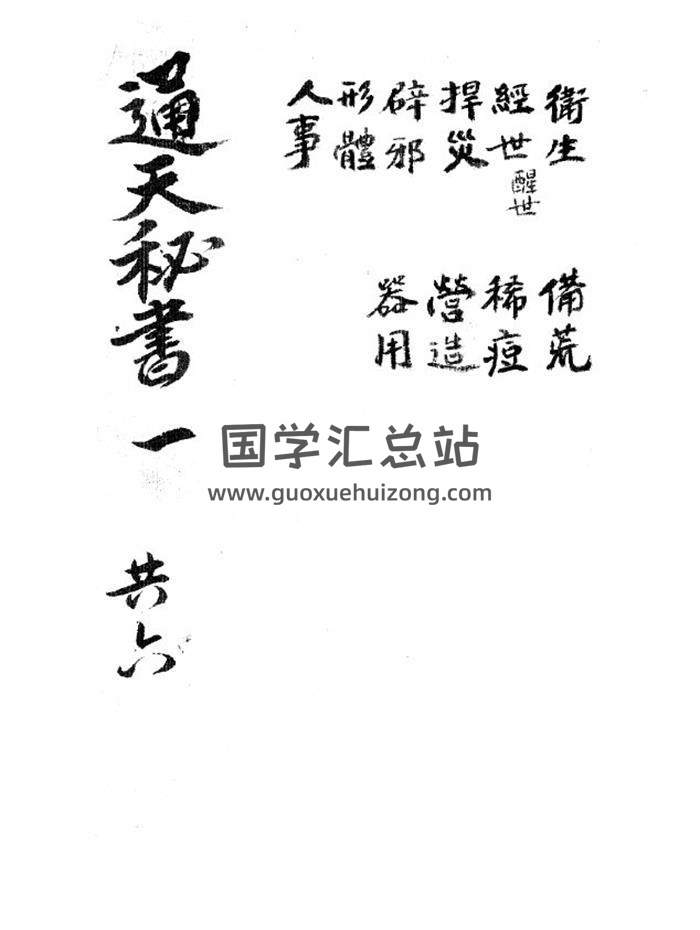 衛生
經世
醒世
捍災
辟邪
形體
人事
備荒
稀痘
營造
器用
通天秘書 一 共六
国学汇总站
www.guoxuehuizong.com